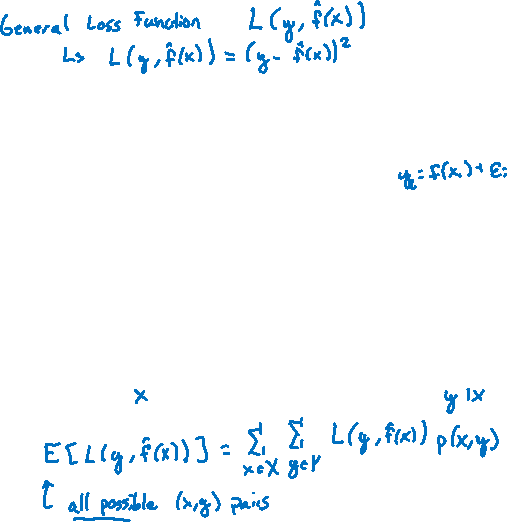 General Loss Function L(y, f̂(x))
↳ L(y, f̂(x)) = (y - f̂(x))²
yᵢ = f(xᵢ) + εᵢ
x y|x
E[L(y, f̂(x))] = Σ x∈X Σ y∈Y L(y, f̂(x)) p(x,y)
↑ all possible (x,y) pairs